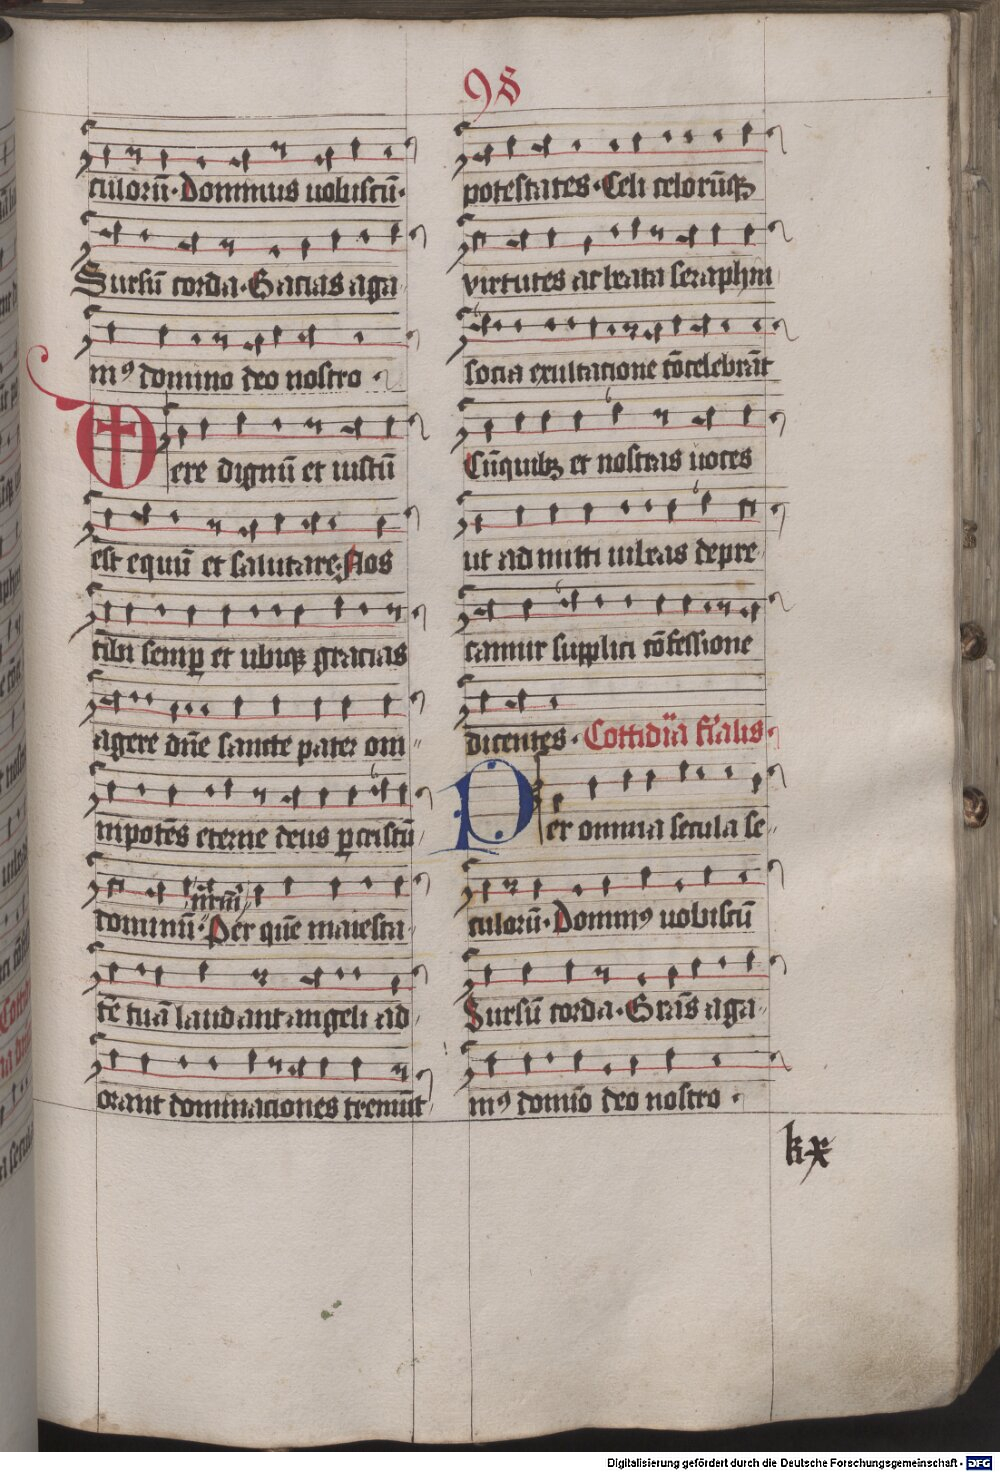 98
culorū. Dominus uobiscū.
Sursū corda. Gracias aga
mꝰ domino deo nostro.
Vere dignū et iustū
est equū et salutare. Nos
tibi semꝑ et ubiqꝫ gracias
agere dn̄e sancte pater om
nipotēs eterne deus ꝑ cristū
nr̄m
dominū. Per quē maiesta
tē tuā laudant angeli ad
orant dominaciones tremūt
potestates. Celi celorūqꝫ
virtutes ac beata seraphin
socia exultacione cōcelebrāt
Cū quibꝫ et nostras uoces
ut admitti iubeas depre
camur supplici cōfessione
dicentes. Cottidīa fīalis
Per omnia secula se
culorū. Dominꝰ uobiscū
Sursū corda. Grās aga
mꝰ domīo deo nostro.
k x
Digitalisierung gefördert durch die Deutsche Forschungsgemeinschaft - DFG